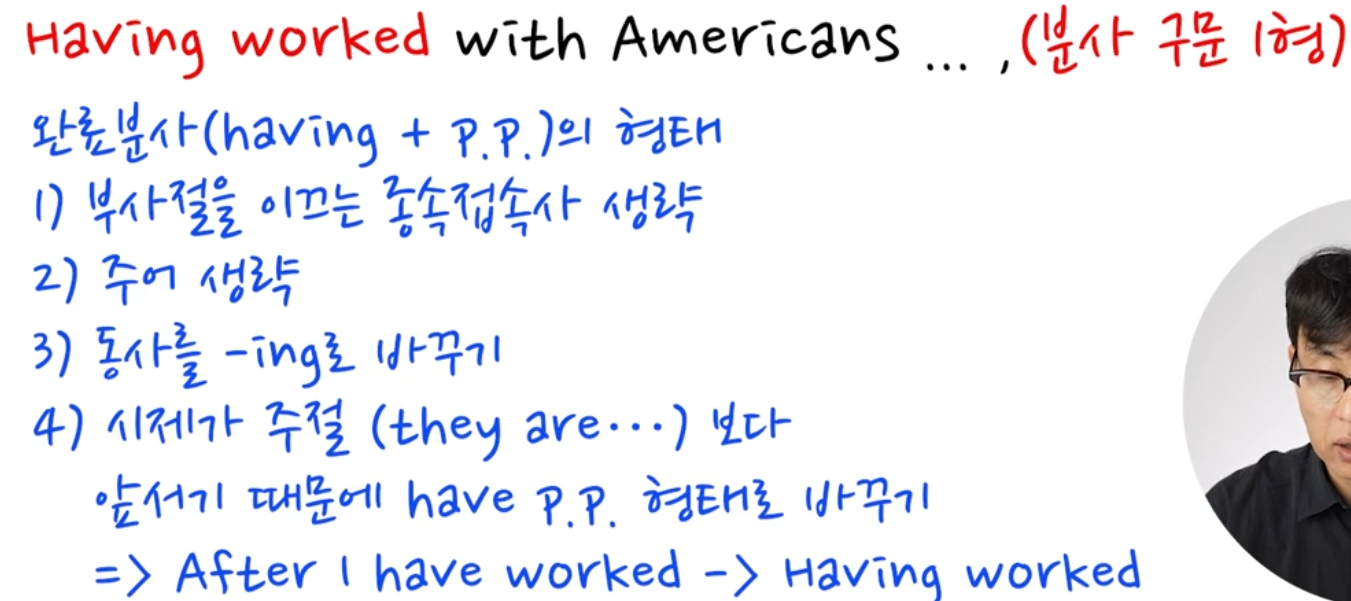 Having worked with Americans ... ,(분사 구문 1형)
완료분사(having + P.P.)의 형태
1) 부사절을 이끄는 종속접속사 생략
2) 주어 생략
3) 동사를 -ing로 바꾸기
4) 시제가 주절 (they are...) 보다
앞서기 때문에 have P.P. 형태로 바꾸기
=> After I have worked -> Having worked